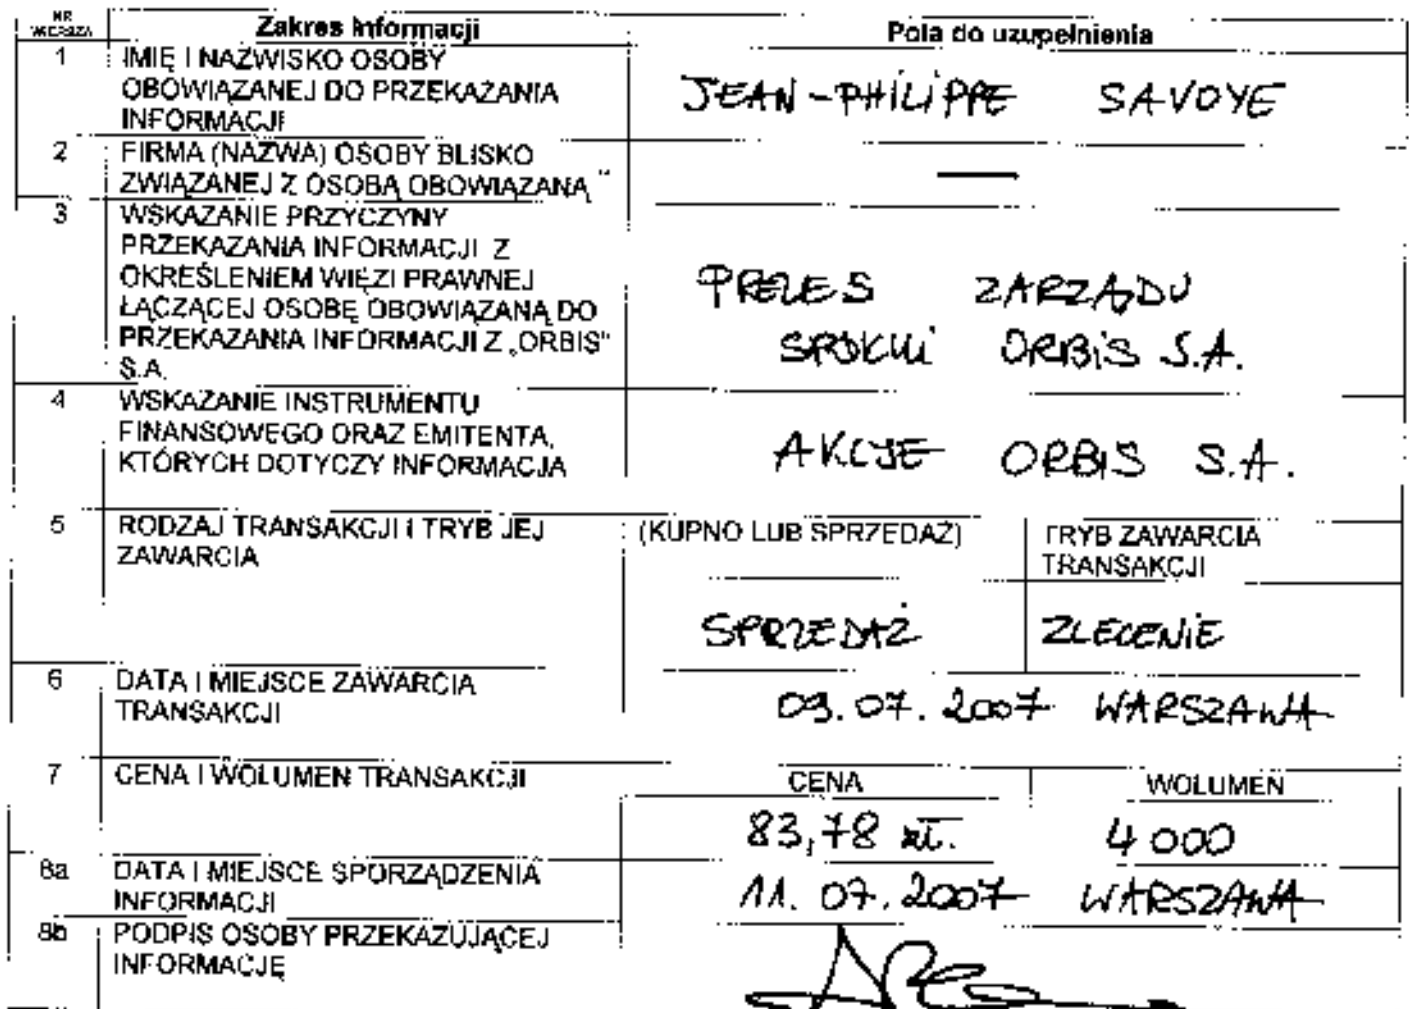 NR WIERSZA Zakres Informacji Pola do uzupełnienia
1 IMIĘ I NAZWISKO OSOBY
OBOWIĄZANEJ DO PRZEKAZANIA
INFORMACJI
JEAN-PHILIPPE SAVOYE
2 FIRMA (NAZWA) OSOBY BLISKO
ZWIĄZANEJ Z OSOBĄ OBOWIĄZANĄ
—
3 WSKAZANIE PRZYCZYNY
PRZEKAZANIA INFORMACJI Z
OKREŚLENIEM WIĘZI PRAWNEJ
ŁĄCZĄCEJ OSOBĘ OBOWIĄZANĄ DO
PRZEKAZANIA INFORMACJI Z „ORBIS"
S.A.
PREZES ZARZĄDU
SPÓŁKI ORBIS S.A.
4 WSKAZANIE INSTRUMENTU
FINANSOWEGO ORAZ EMITENTA,
KTÓRYCH DOTYCZY INFORMACJA
AKCJE ORBIS S.A.
5 RODZAJ TRANSAKCJI I TRYB JEJ
ZAWARCIA
(KUPNO LUB SPRZEDAŻ)
TRYB ZAWARCIA
TRANSAKCJI
SPRZEDAŻ ZLECENIE
6 DATA I MIEJSCE ZAWARCIA
TRANSAKCJI
09.07.2007 WARSZAWA
7 CENA I WOLUMEN TRANSAKCJI
CENA WOLUMEN
83,78 zł. 4 000
8a DATA I MIEJSCE SPORZĄDZENIA
INFORMACJI
11.07.2007 WARSZAWA
8b PODPIS OSOBY PRZEKAZUJĄCEJ
INFORMACJĘ